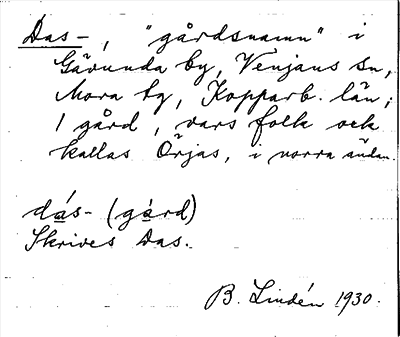 Das-, "gårdsnamn" i
Gävunda by, Venjans sn,
Mora tg, Kopparb. län;
1 gård, vars folk ock
kallas Örjas, i norra ändan.
dás- (gård)
Skrives Das.
B. Lindén 1930.